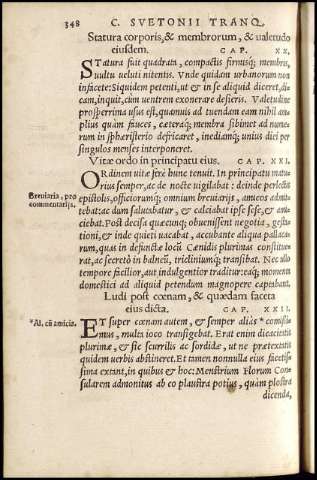 348 C. SVETONII TRANQ.
Statura corporis, & membrorum, & ualetudo
eiusdem. CAP. XX.
STatura fuit quadrata, compactis firmisq; membris,
uultu ueluti nitentis. Vnde quidam urbanorum non
infacete: Siquidem petenti, ut & in se aliquid diceret, di-
cam, inquit, cùm uentrem exonerare desieris. Valetudine
prosperrima usus est, quamuis ad tuendam eam nihil am-
plius quàm fauces, cæteraq; membra sibimet ad nume-
rum in sphæristerio defricaret, inediamq; unius diei per
singulos menses interponeret.
Vitæ ordo in principatu eius. CAP. XXI.
ORdinem uitæ ferè hunc tenuit. In principatu matu-
rius semper, ac de nocte uigilabat: deinde perlectis
Breuiaria, pro
commentarijs.
epistolis, officiorumq; omnium breuiarijs, amicos admit-
tebat: ac dum salutabatur, & calciabat ipse sese, & ami-
ciebat. Post decisa quæcunq; obuenissent negotia, gesta-
tioni, & inde quieti uacabat, accubante aliqua pallaca-
rum, quas in defunctæ locū Cænidis plurimas constitue-
rat, ac secretò in balneū, tricliniumq; transibat. Nec ullo
tempore facilior, aut indulgentior traditur: eaq; momenta
domestici ad aliquid petendum magnopere captabant.
Ludi post cœnam, & quædam faceta
eius dicta. CAP. XXII.
*Al. cū amicis.
ET super cœnam autem, & semper aliàs *comissi-
mus, multa ioco transigebat. Erat enim dicacitatis
plurimæ, & sic scurrilis ac sordidæ, ut ne prætextatis
quidem uerbis abstineret. Et tamen nonnulla eius facetis-
sima extant, in quibus & hoc: Menstrium Florum Con-
sularem admonitus ab eo plaustra potius, quàm plostra
dicenda,